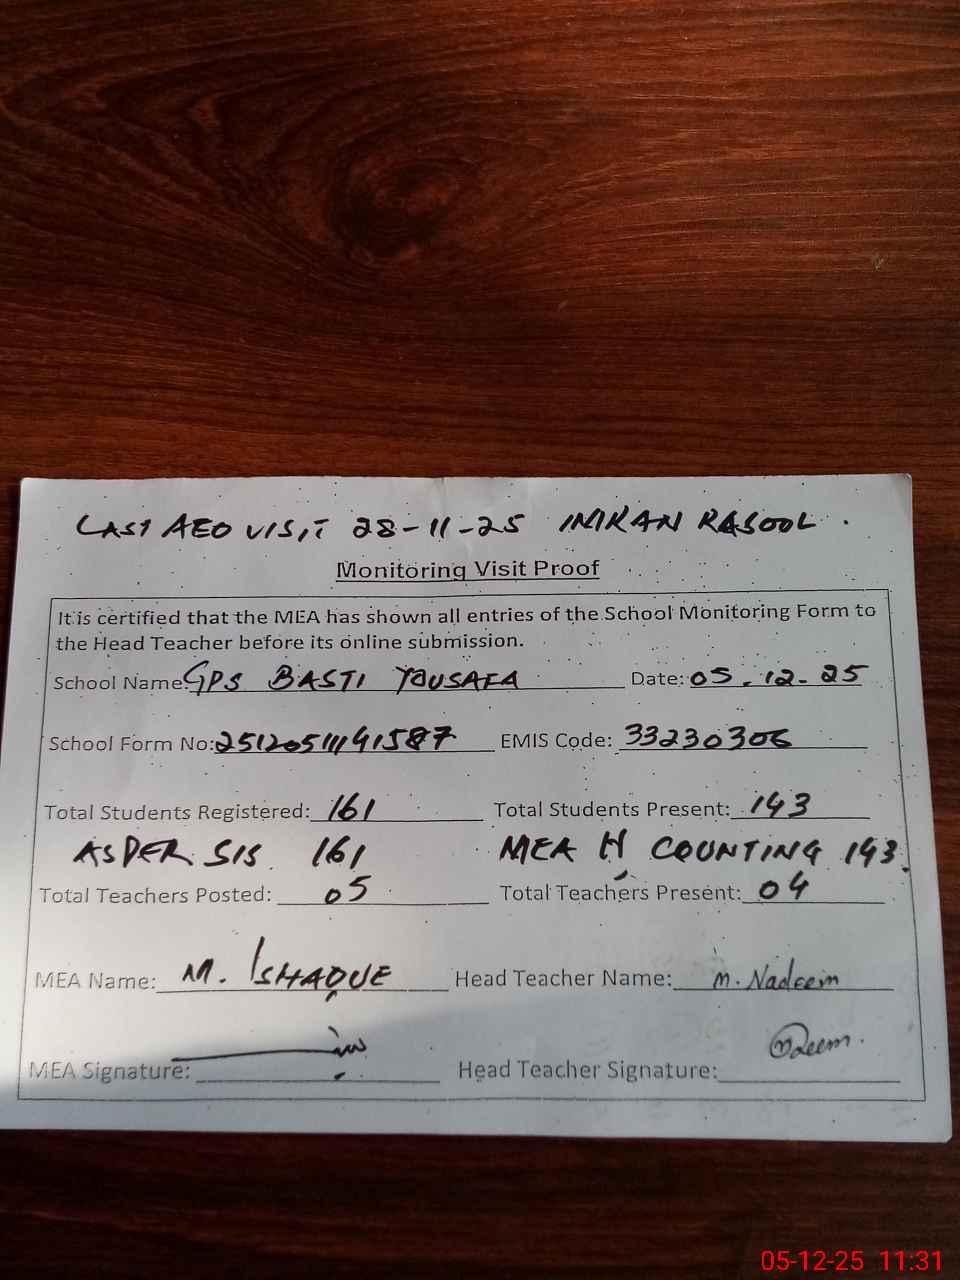 LAST AEO VISIT 28-11-25 IMRAN RASOOL.
Monitoring Visit Proof
It is certified that the MEA has shown all entries of the School Monitoring Form to
the Head Teacher before its online submission.
School Name: GPS BASTI YOUSAFA Date: 05.12-25
School Form No: 2512051141587 EMIS Code: 33230306
Total Students Registered: 161 Total Students Present: 143
AS PER SIS 161 MEA H COUNTING 143.
Total Teachers Posted: 05 Total Teachers Present: 04
MEA Name: M. ISHAQUE Head Teacher Name: M. Nadeem
MEA Signature: Head Teacher Signature:
05-12-25 11:31